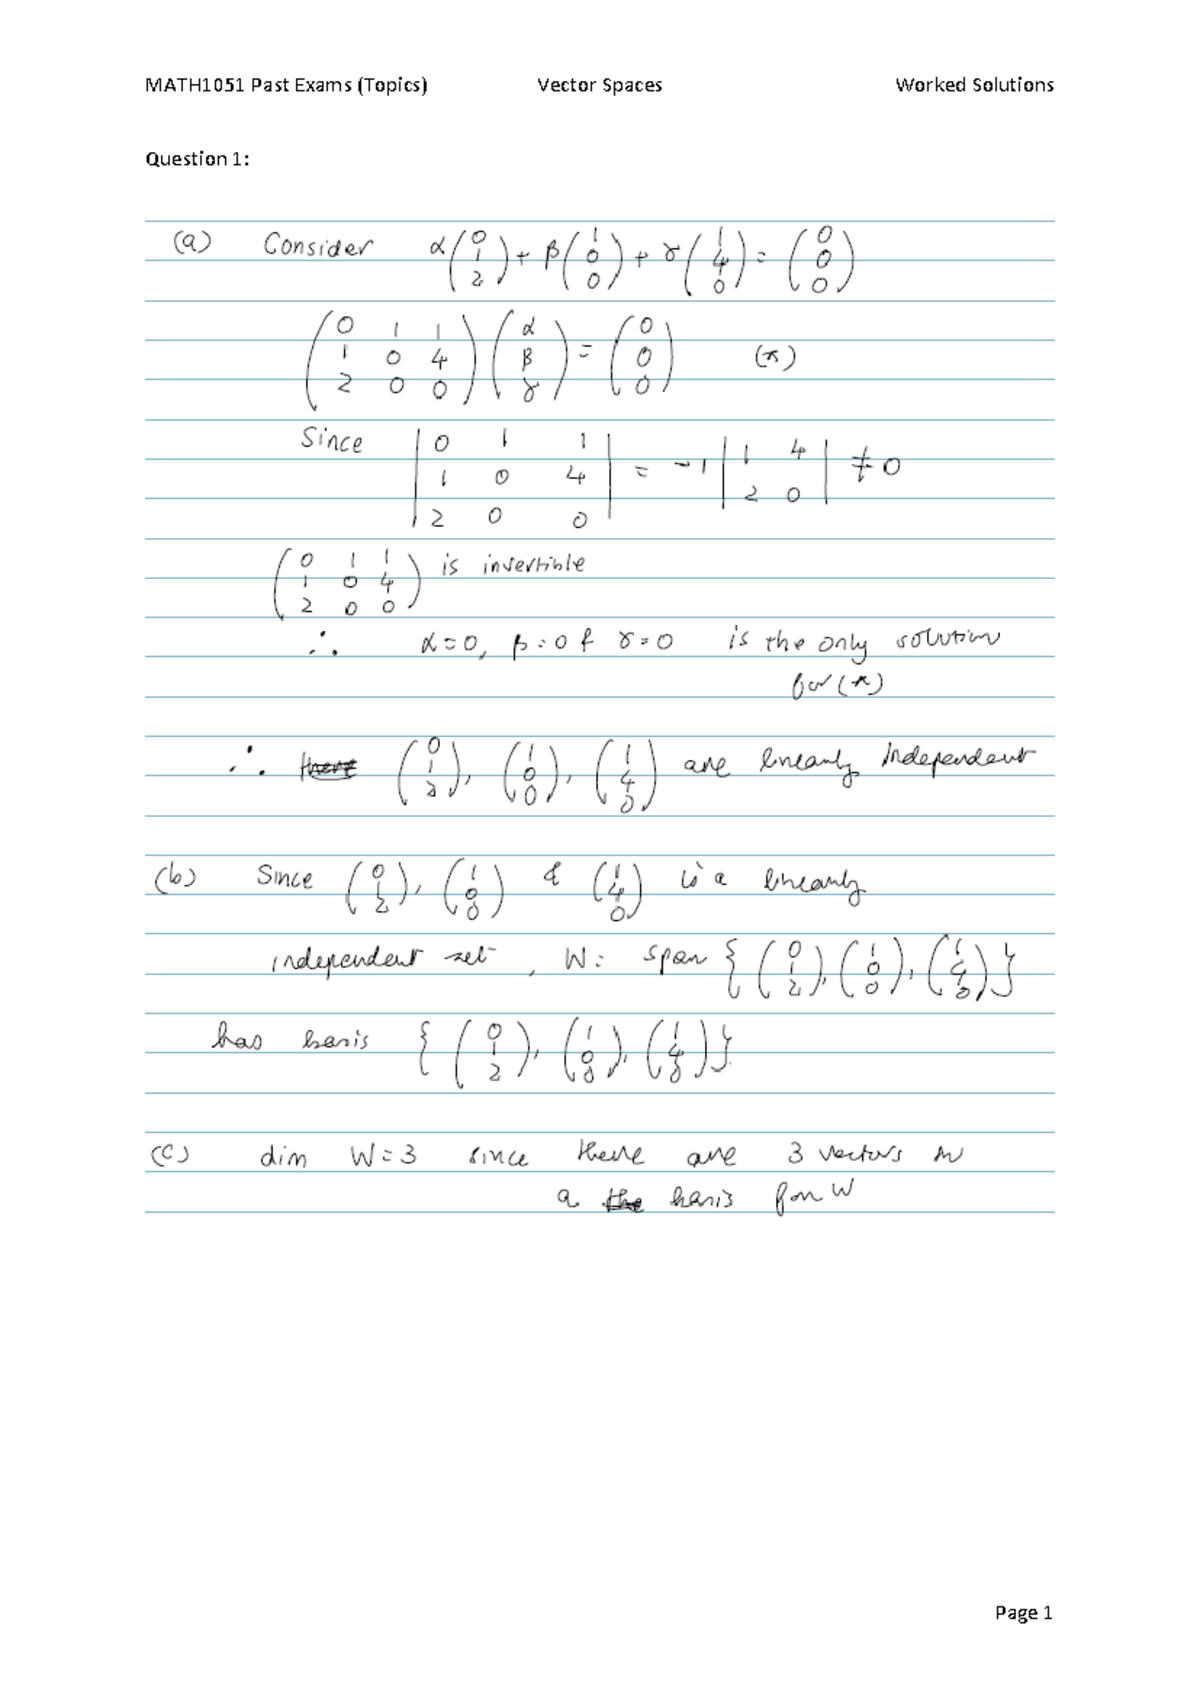 MATH1051 Past Exams (Topics) Vector Spaces Worked Solutions
Question 1:
(a) Consider α(0 1 2) + β(1 0 0) + γ(1 4 0) = (0 0 0)
(0 1 1
1 0 4
2 0 0) (α β γ) = (0 0 0) (*)
Since |0 1 1
1 0 4
2 0 0| = -1 |1 4
2 0| ≠ 0
(0 1 1
1 0 4
2 0 0) is invertible
∴ α=0, β=0 & γ=0 is the only solution
for (*)
∴ (0 1 2), (1 0 0), (1 4 0) are linearly independent
(b) Since (0 1 2), (1 0 0) & (1 4 0) is a linearly
independent set, W = span {(0 1 2), (1 0 0), (1 4 0)}
has basis {(0 1 2), (1 0 0), (1 4 0)}.
(c) dim W = 3 since there are 3 vectors in
a the basis for W
Page 1